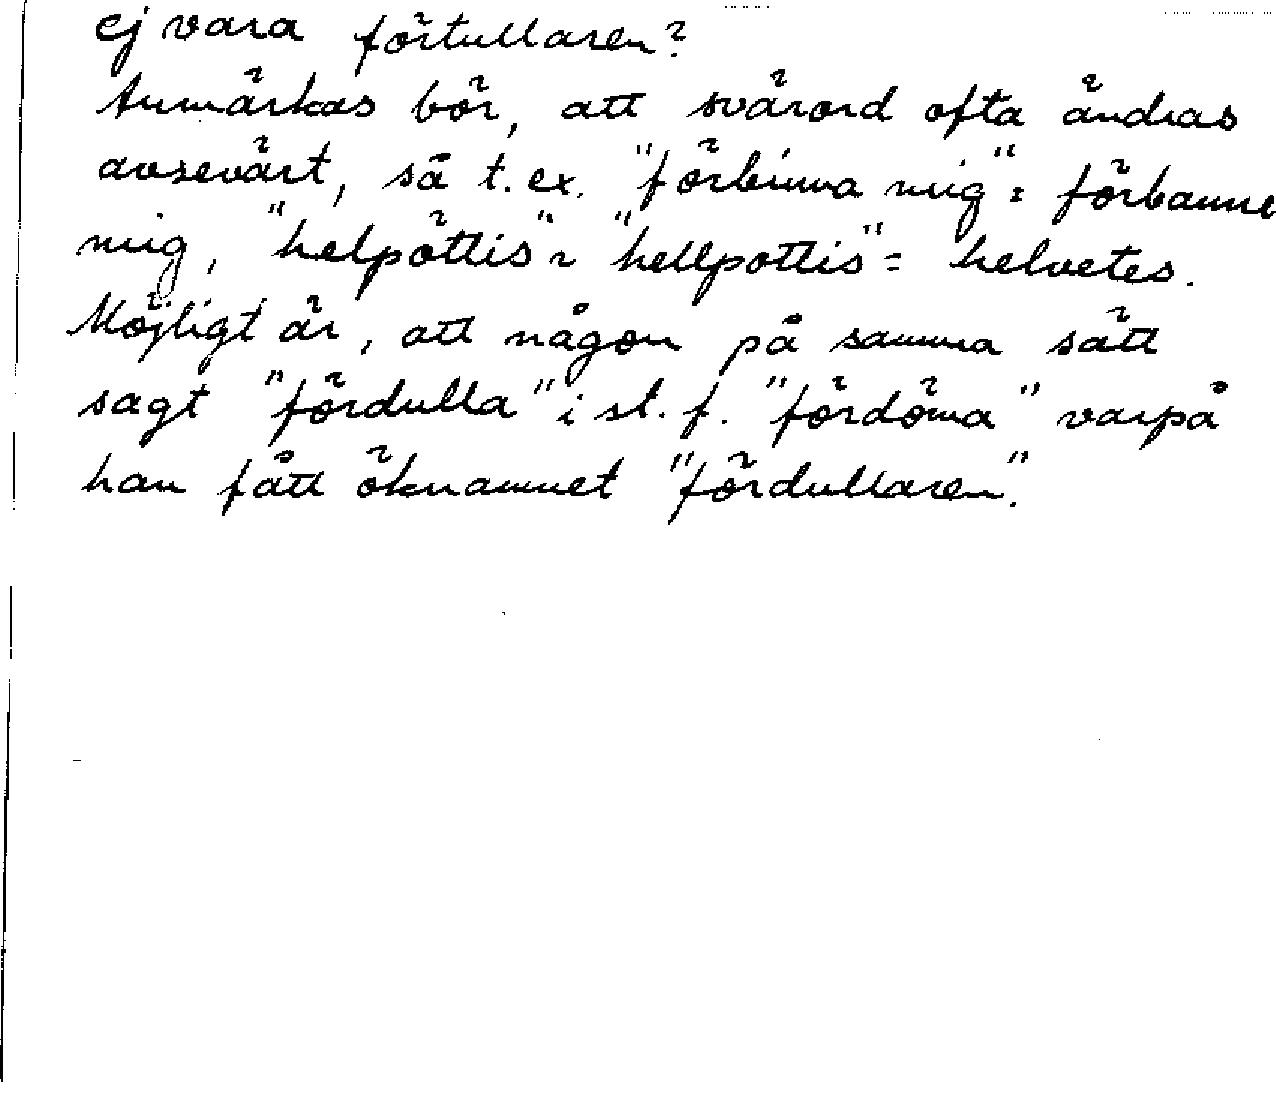 ej vara förtullaren?
Anmärkas bör, att svärord ofta ändras
avsevärt, så t. ex. "förbinna mig" = förbanne
mig, "helpöttis" ~ "hellpottis" = helvetes.
Möjligt är, att någon på samma sätt
sagt "fördulla" i st. f. "fördöma" varpå
han fått öknamnet "fördullaren".